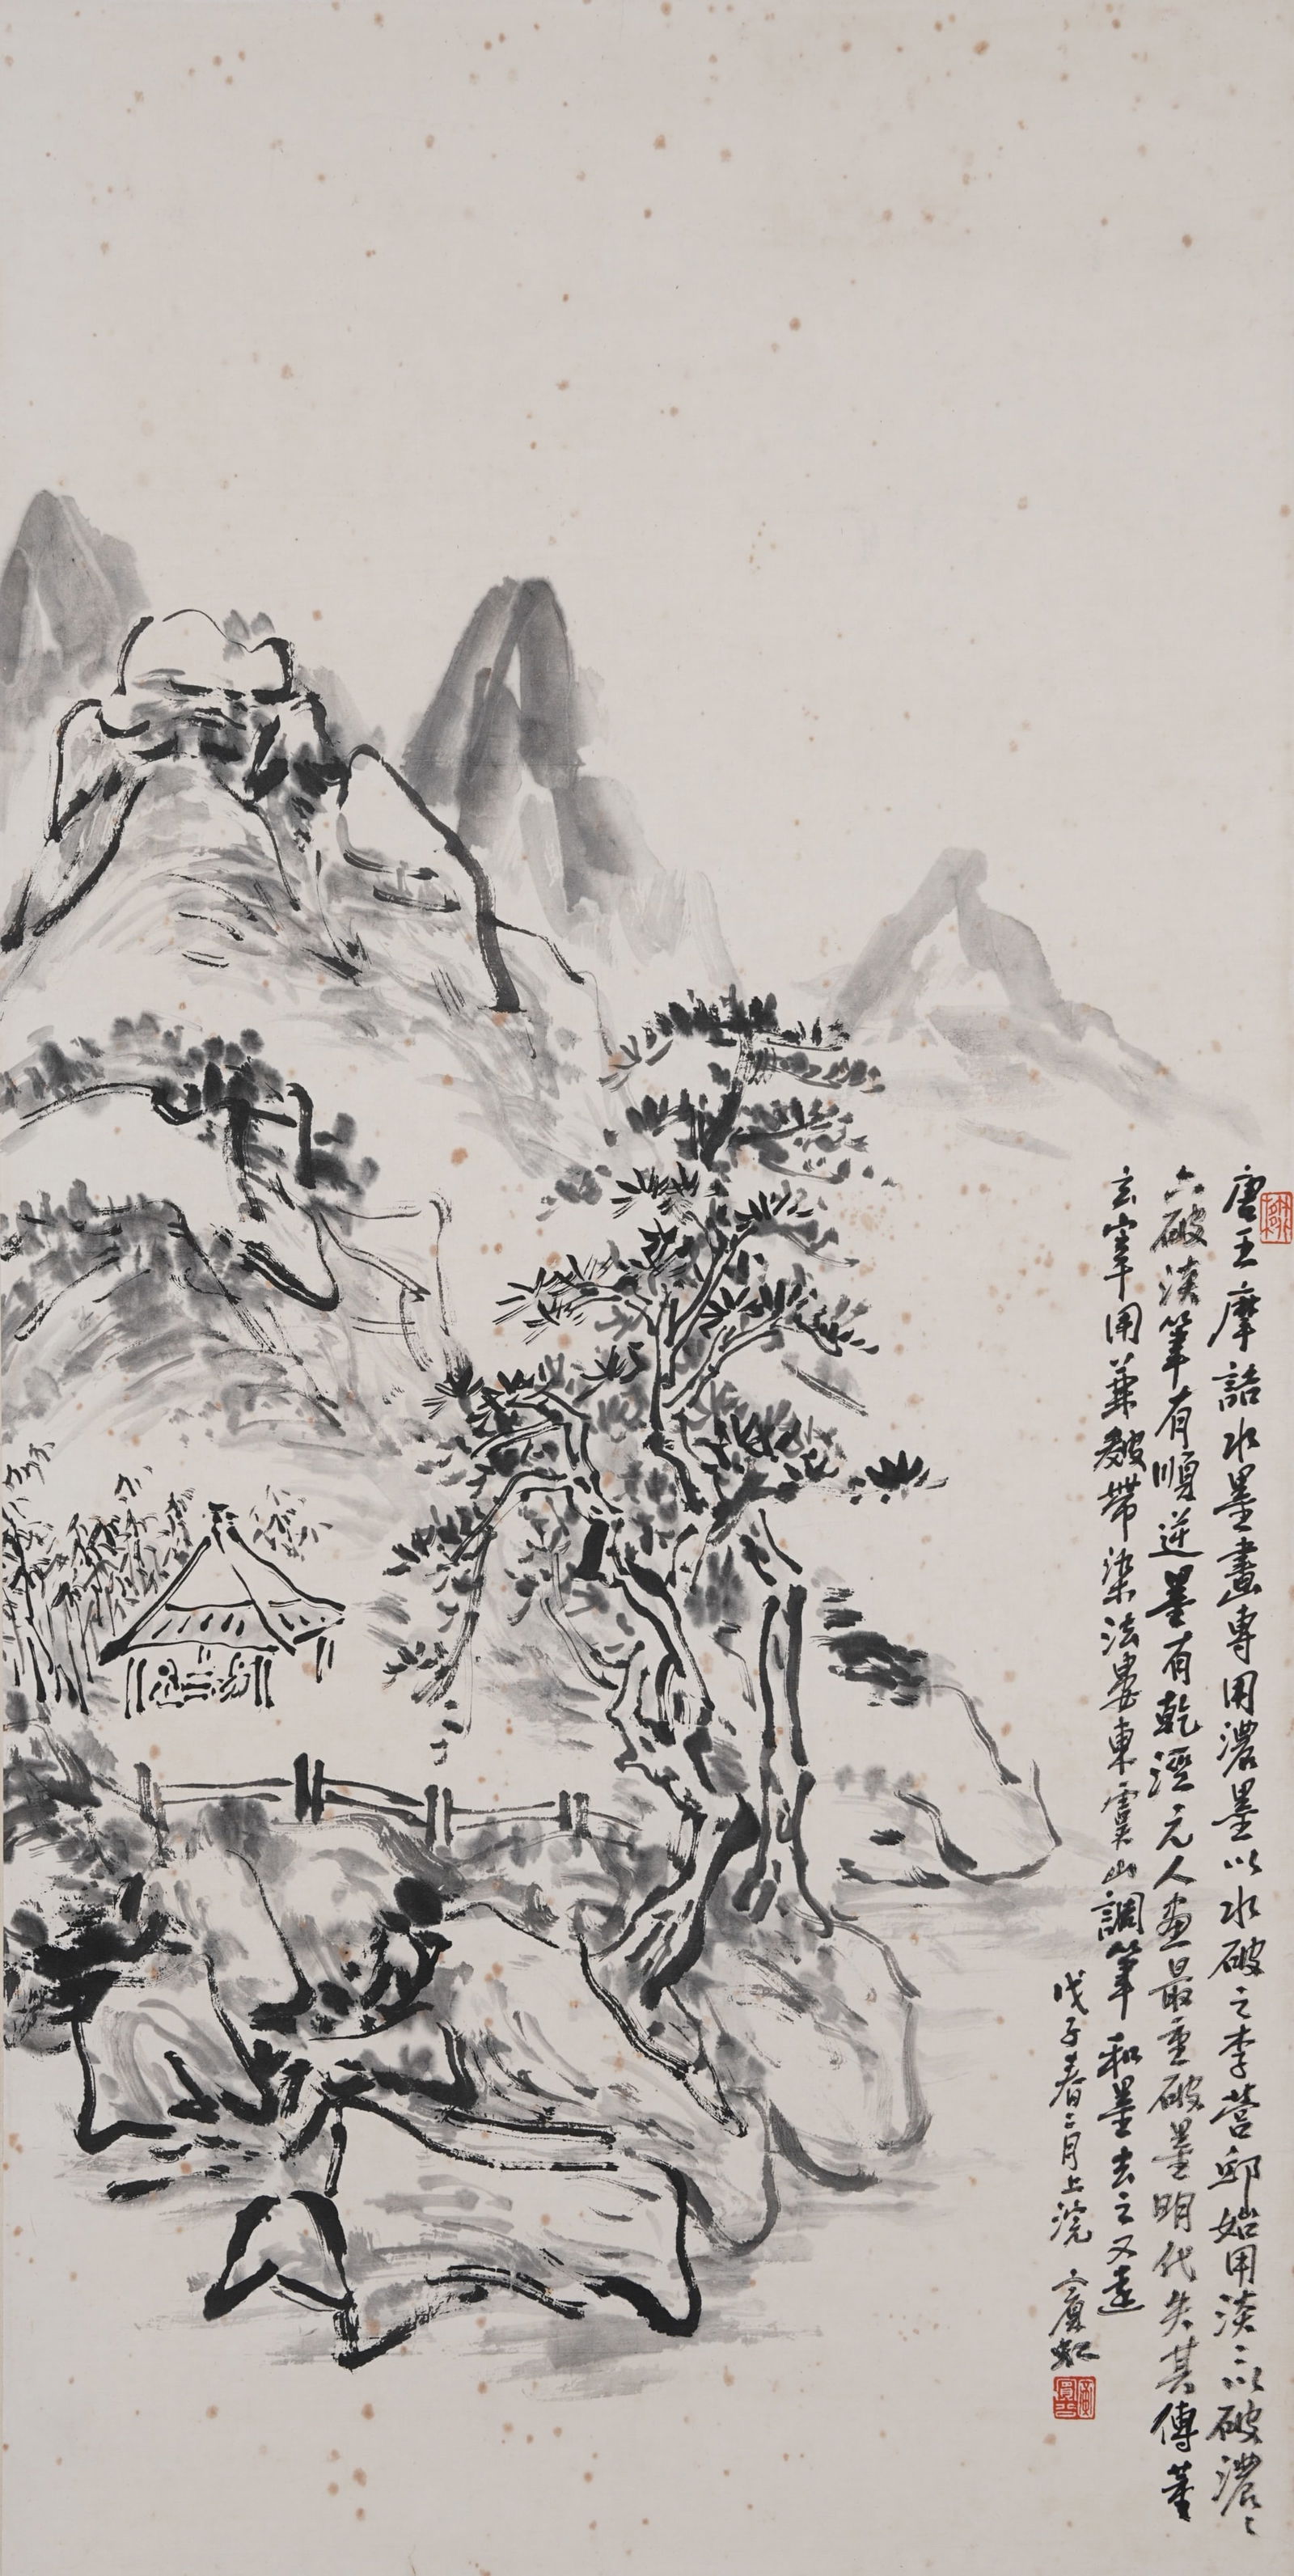 唐王摩詰水墨畫專用濃墨以水破之李營邱始用淡墨以破濃墨
六破淡筆有順逆墨有乾溼元人畫最重破墨明代失其傳董
玄宰用兼皴帶染法婁東虞山調筆和墨去之又遠
戊子春二月上浣 賓虹